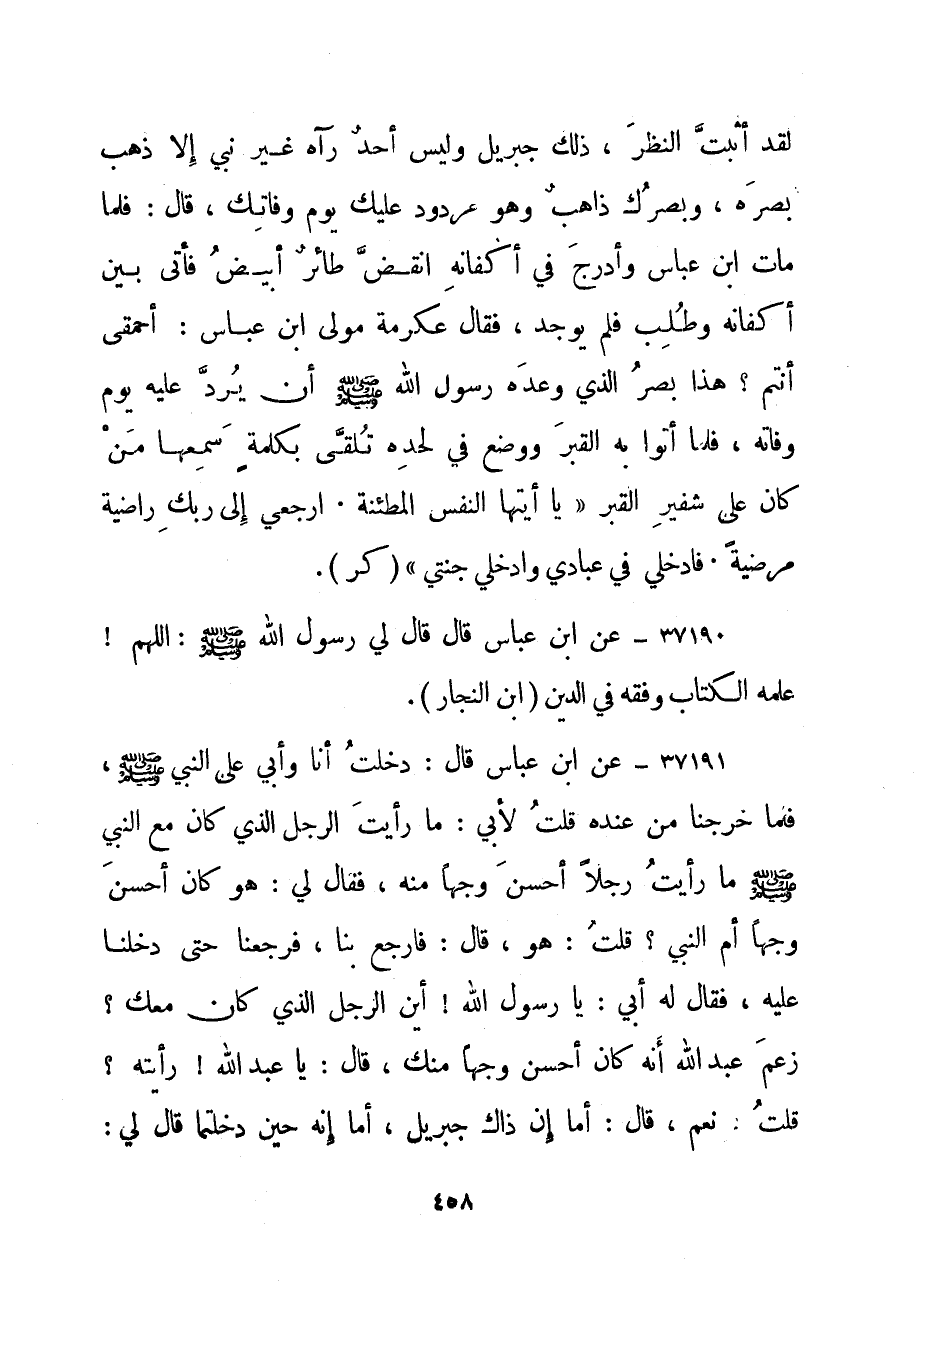 لقد أثبتَّ النظرَ ، ذلك جبريل وليس أحدٌ رآه غير نبي إلا ذهب
بصرَه ، وبصرُك ذاهبٌ وهو مردود عليك يوم وفاتك ، قال : فلما
مات ابن عباس وأدرجَ في أكفانهِ انقضَّ طائرٌ أبيضُ فأتى بين
أكفانه وطُلِب فلم يوجد ، فقال عكرمة مولى ابن عباس : أحمقى
أنتم ؟ هذا بصرُ الذي وعدَه رسول الله ﷺ أن يُردَّ عليه يوم
وفاته ، فلما أتوا به القبرَ ووضع في لحدِه تُلقَّى بكلمةٍ سَمِعها مَنْ
كان على شفيرِ القبر « يا أيتها النفس المطمئنة · ارجعي إلى ربكِ راضية
مرضيةً · فادخلي في عبادي وادخلي جنتي » ( كر ) .
٣٧١٩٠ – عن ابن عباس قال قال لي رسول الله ﷺ : اللهم !
علمه الكتاب وفقه في الدين ( ابن النجار ) .
٣٧١٩١ – عن ابن عباس قال : دخلتُ أنا وأبي على النبي ﷺ ،
فلما خرجنا من عنده قلتُ لأبي : ما رأيتَ الرجل الذي كان مع النبي
ﷺ ما رأيتُ رجلاً أحسنَ وجهاً منه ، فقال لي : هو كان أحسنَ
وجهاً أم النبي ؟ قلتُ : هو ، قال : فارجع بنا ، فرجعنا حتى دخلنا
عليه ، فقال له أبي : يا رسول الله ! أين الرجل الذي كان معك ؟
زعمَ عبد الله أنه كان أحسن وجهاً منك ، قال : يا عبد الله ! رأيته ؟
قلتُ : نعم ، قال : أما إن ذاك جبريل ، أما إنه حين دخلتما قال لي :
٤٥٨